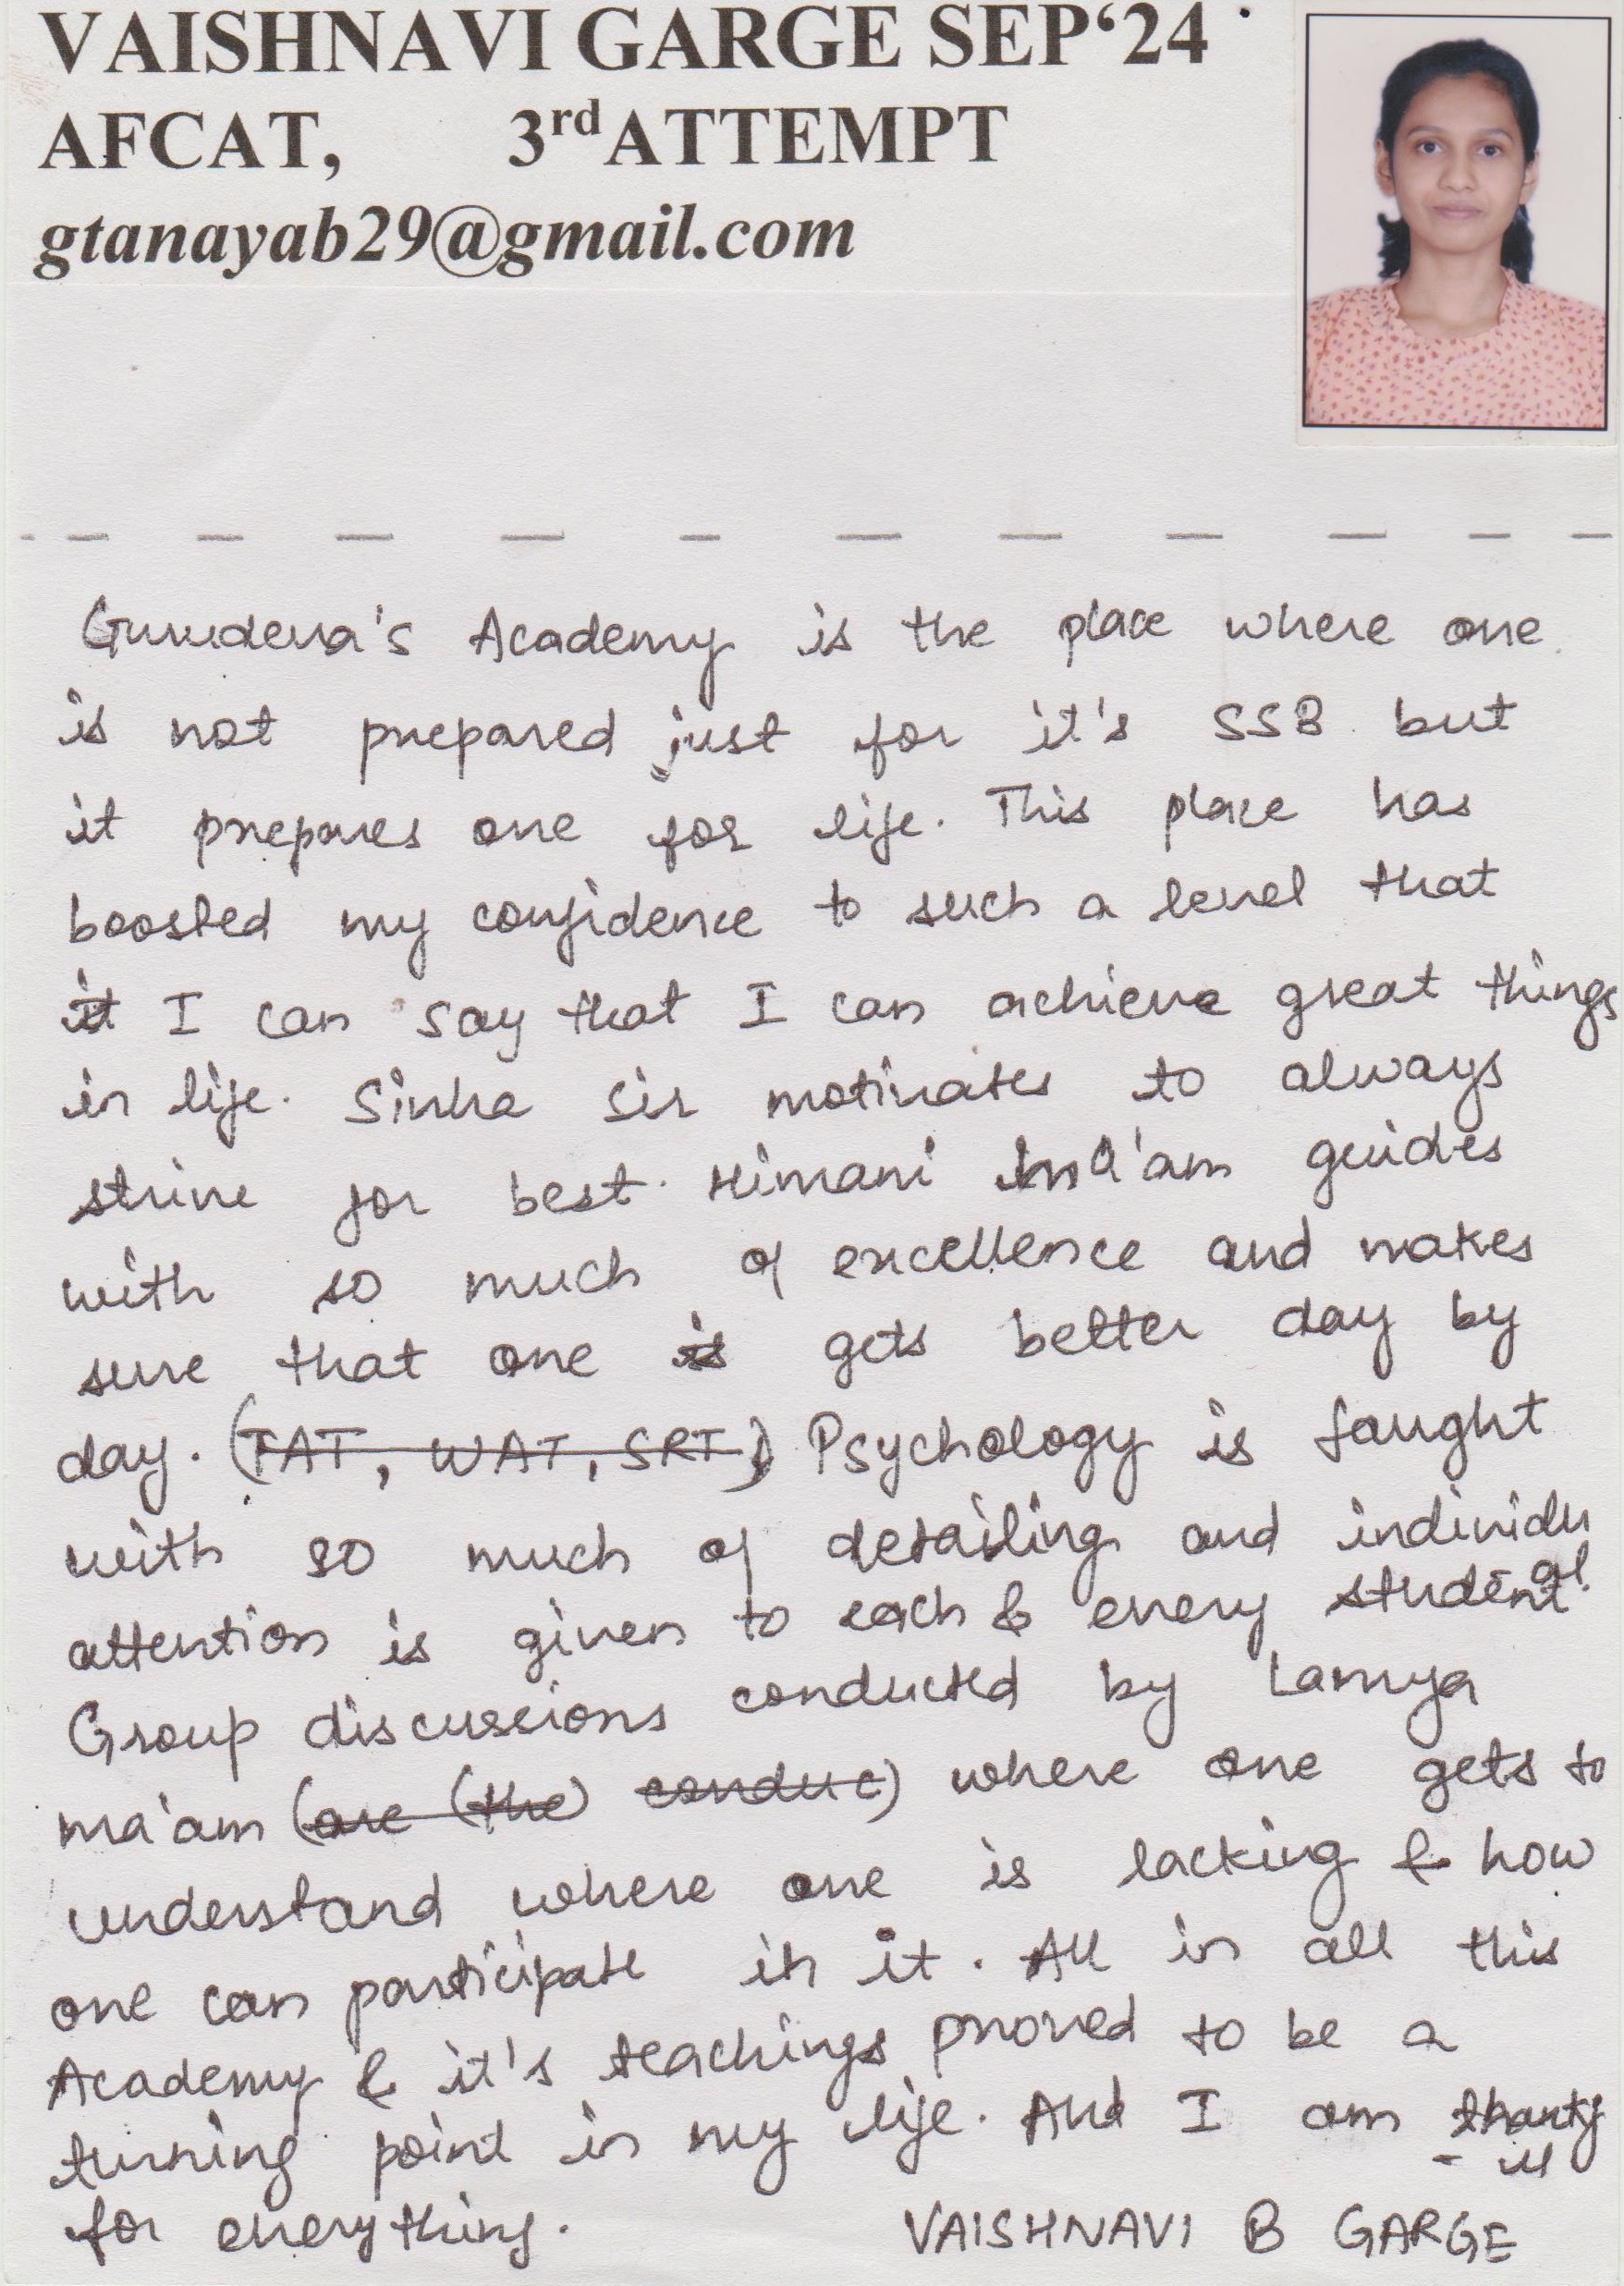 VAISHNAVI GARGE SEP‘24
AFCAT, 3rd ATTEMPT
gtanayab29@gmail.com
Gurudeva's Academy is the place where one
is not prepared just for it's SSB but
it prepares one for life. This place has
boosted my confidence to such a level that
it I can say that I can achieve great things
in life. Sinha sir motivates to always
strive for best. Himani ma'am guides
with so much of excellence and makes
sure that one is gets better day by
day. (TAT, WAT, SRT,) Psychology is taught
with so much of detailing and individual
attention is given to each & every student.
Group discussions conducted by Lamya
ma'am (are (the) conduc) where one gets to
understand where one is lacking & how
one can participate in it. All in all this
Academy & it's teachings proved to be a
turning point in my life. And I am
for everything. VAISHNAVI B GARGE